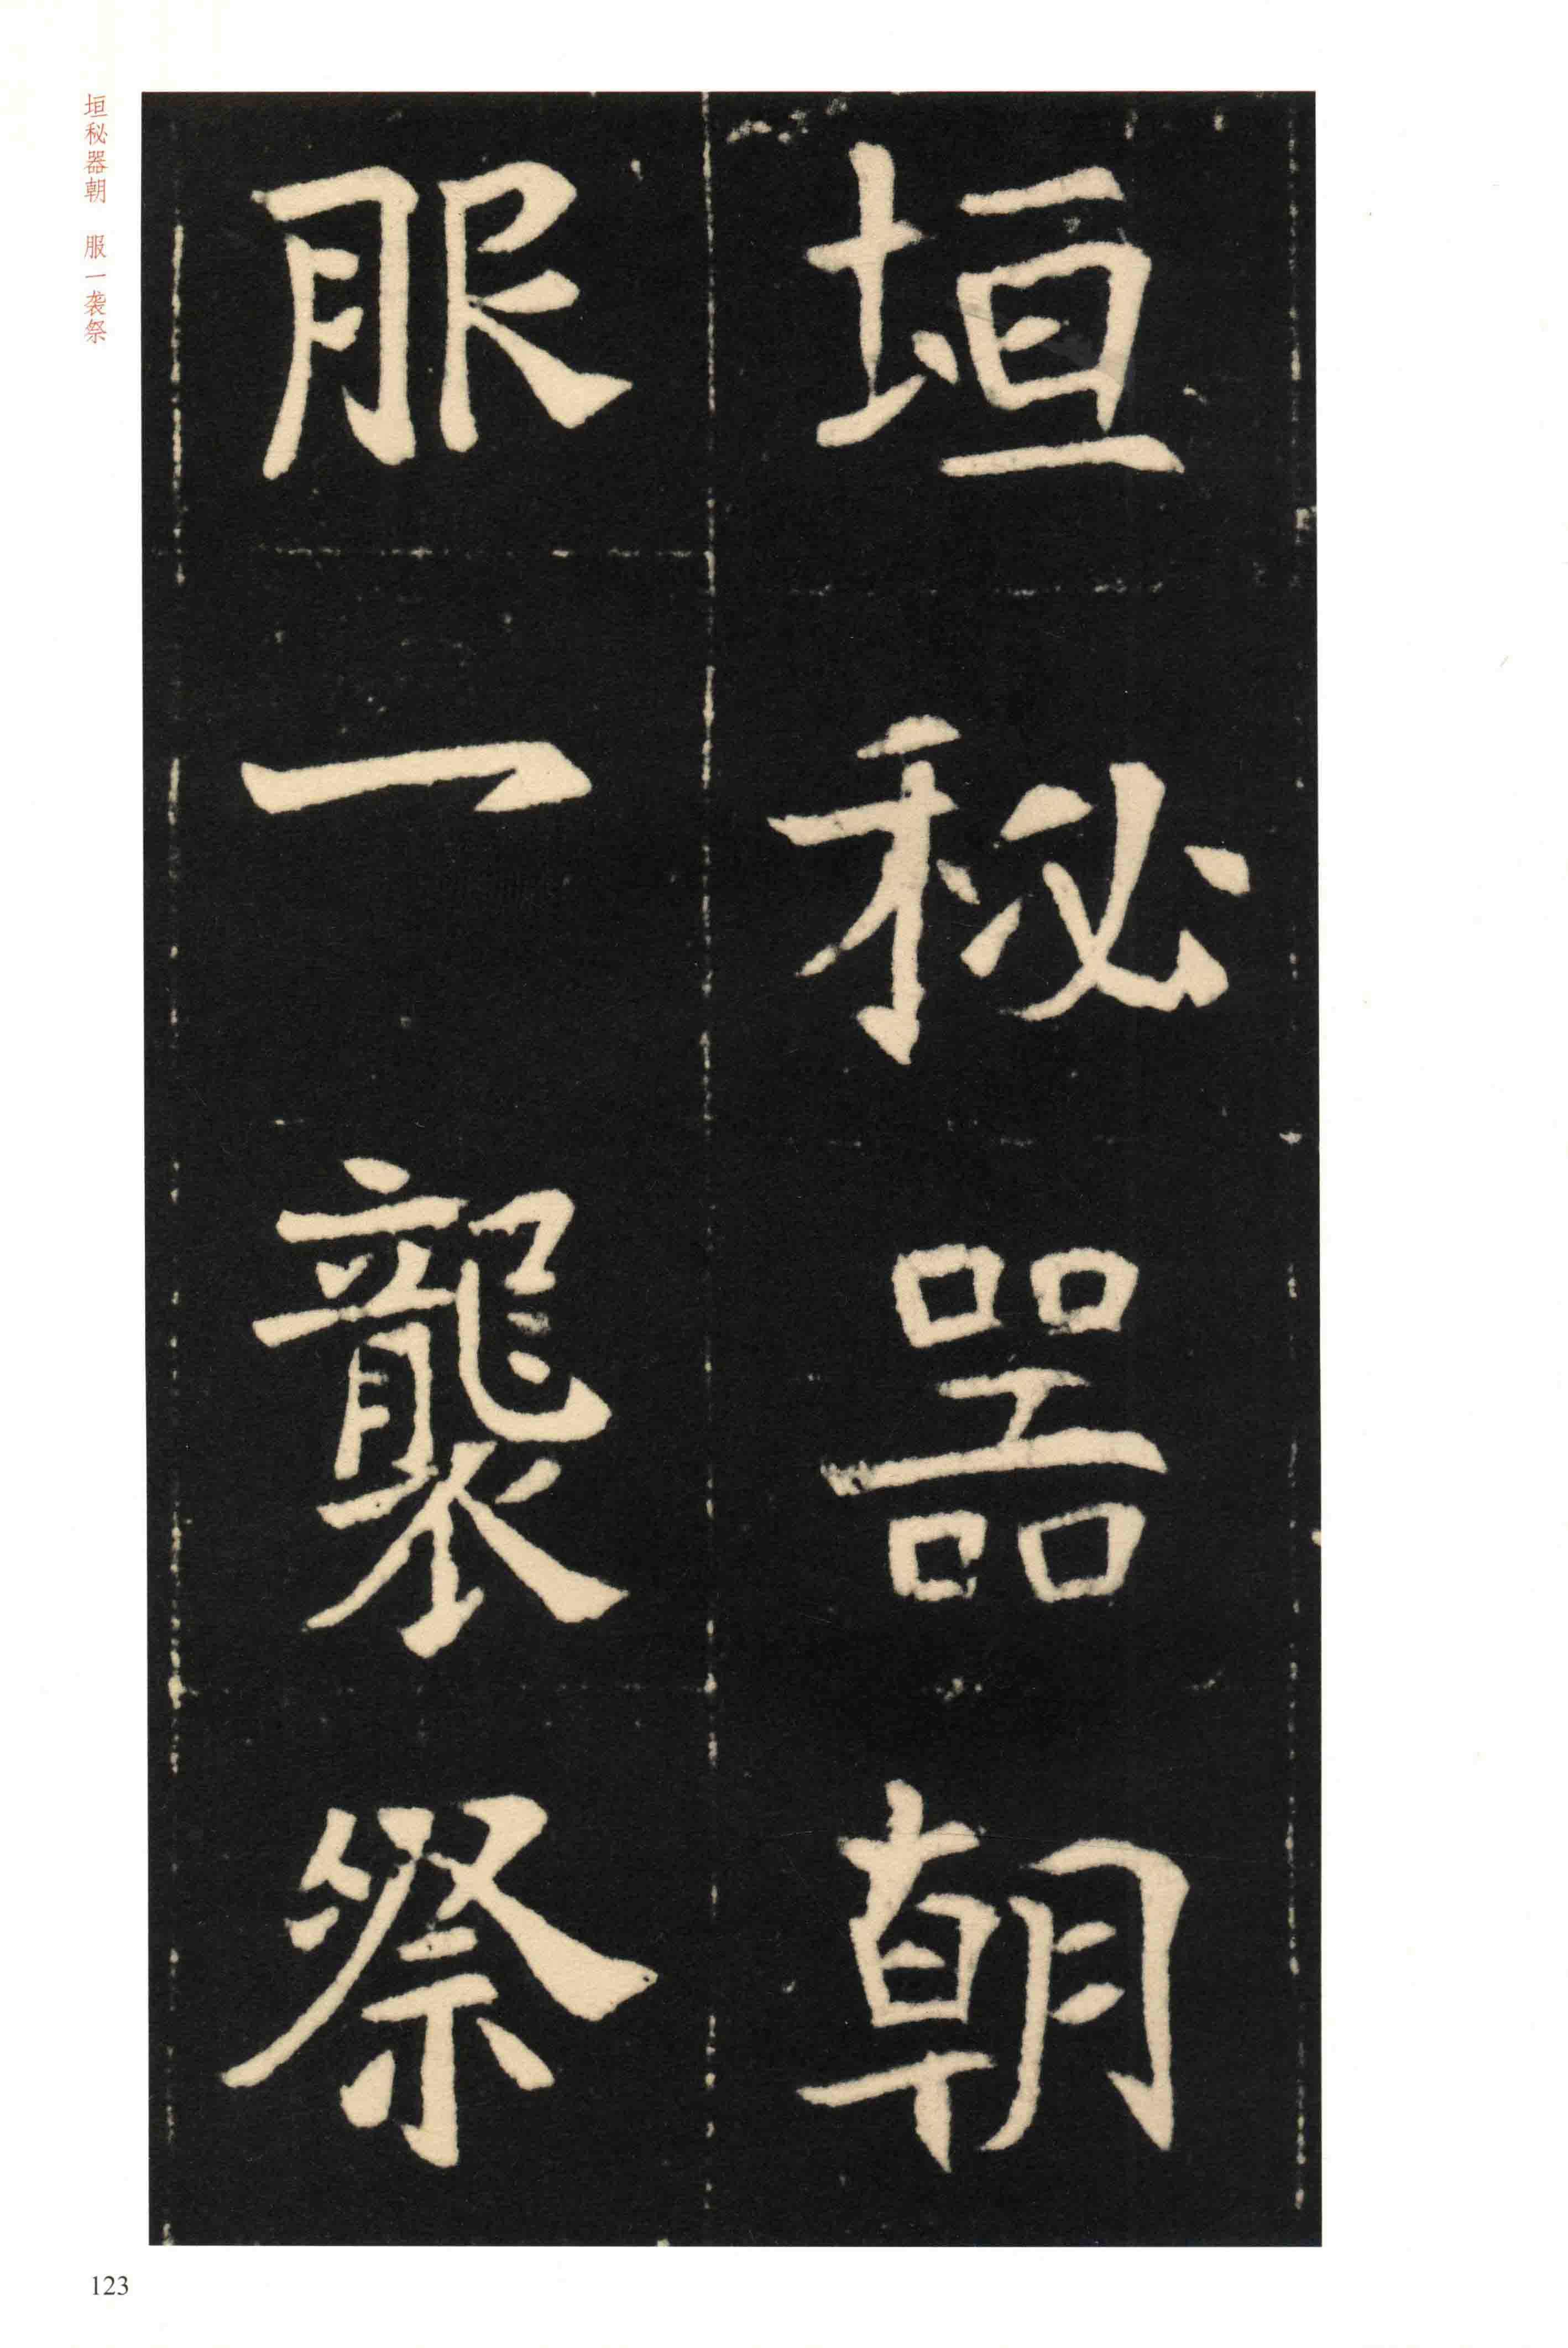 垣秘器朝
服一襲祭
垣秘器朝 服一袭祭
123